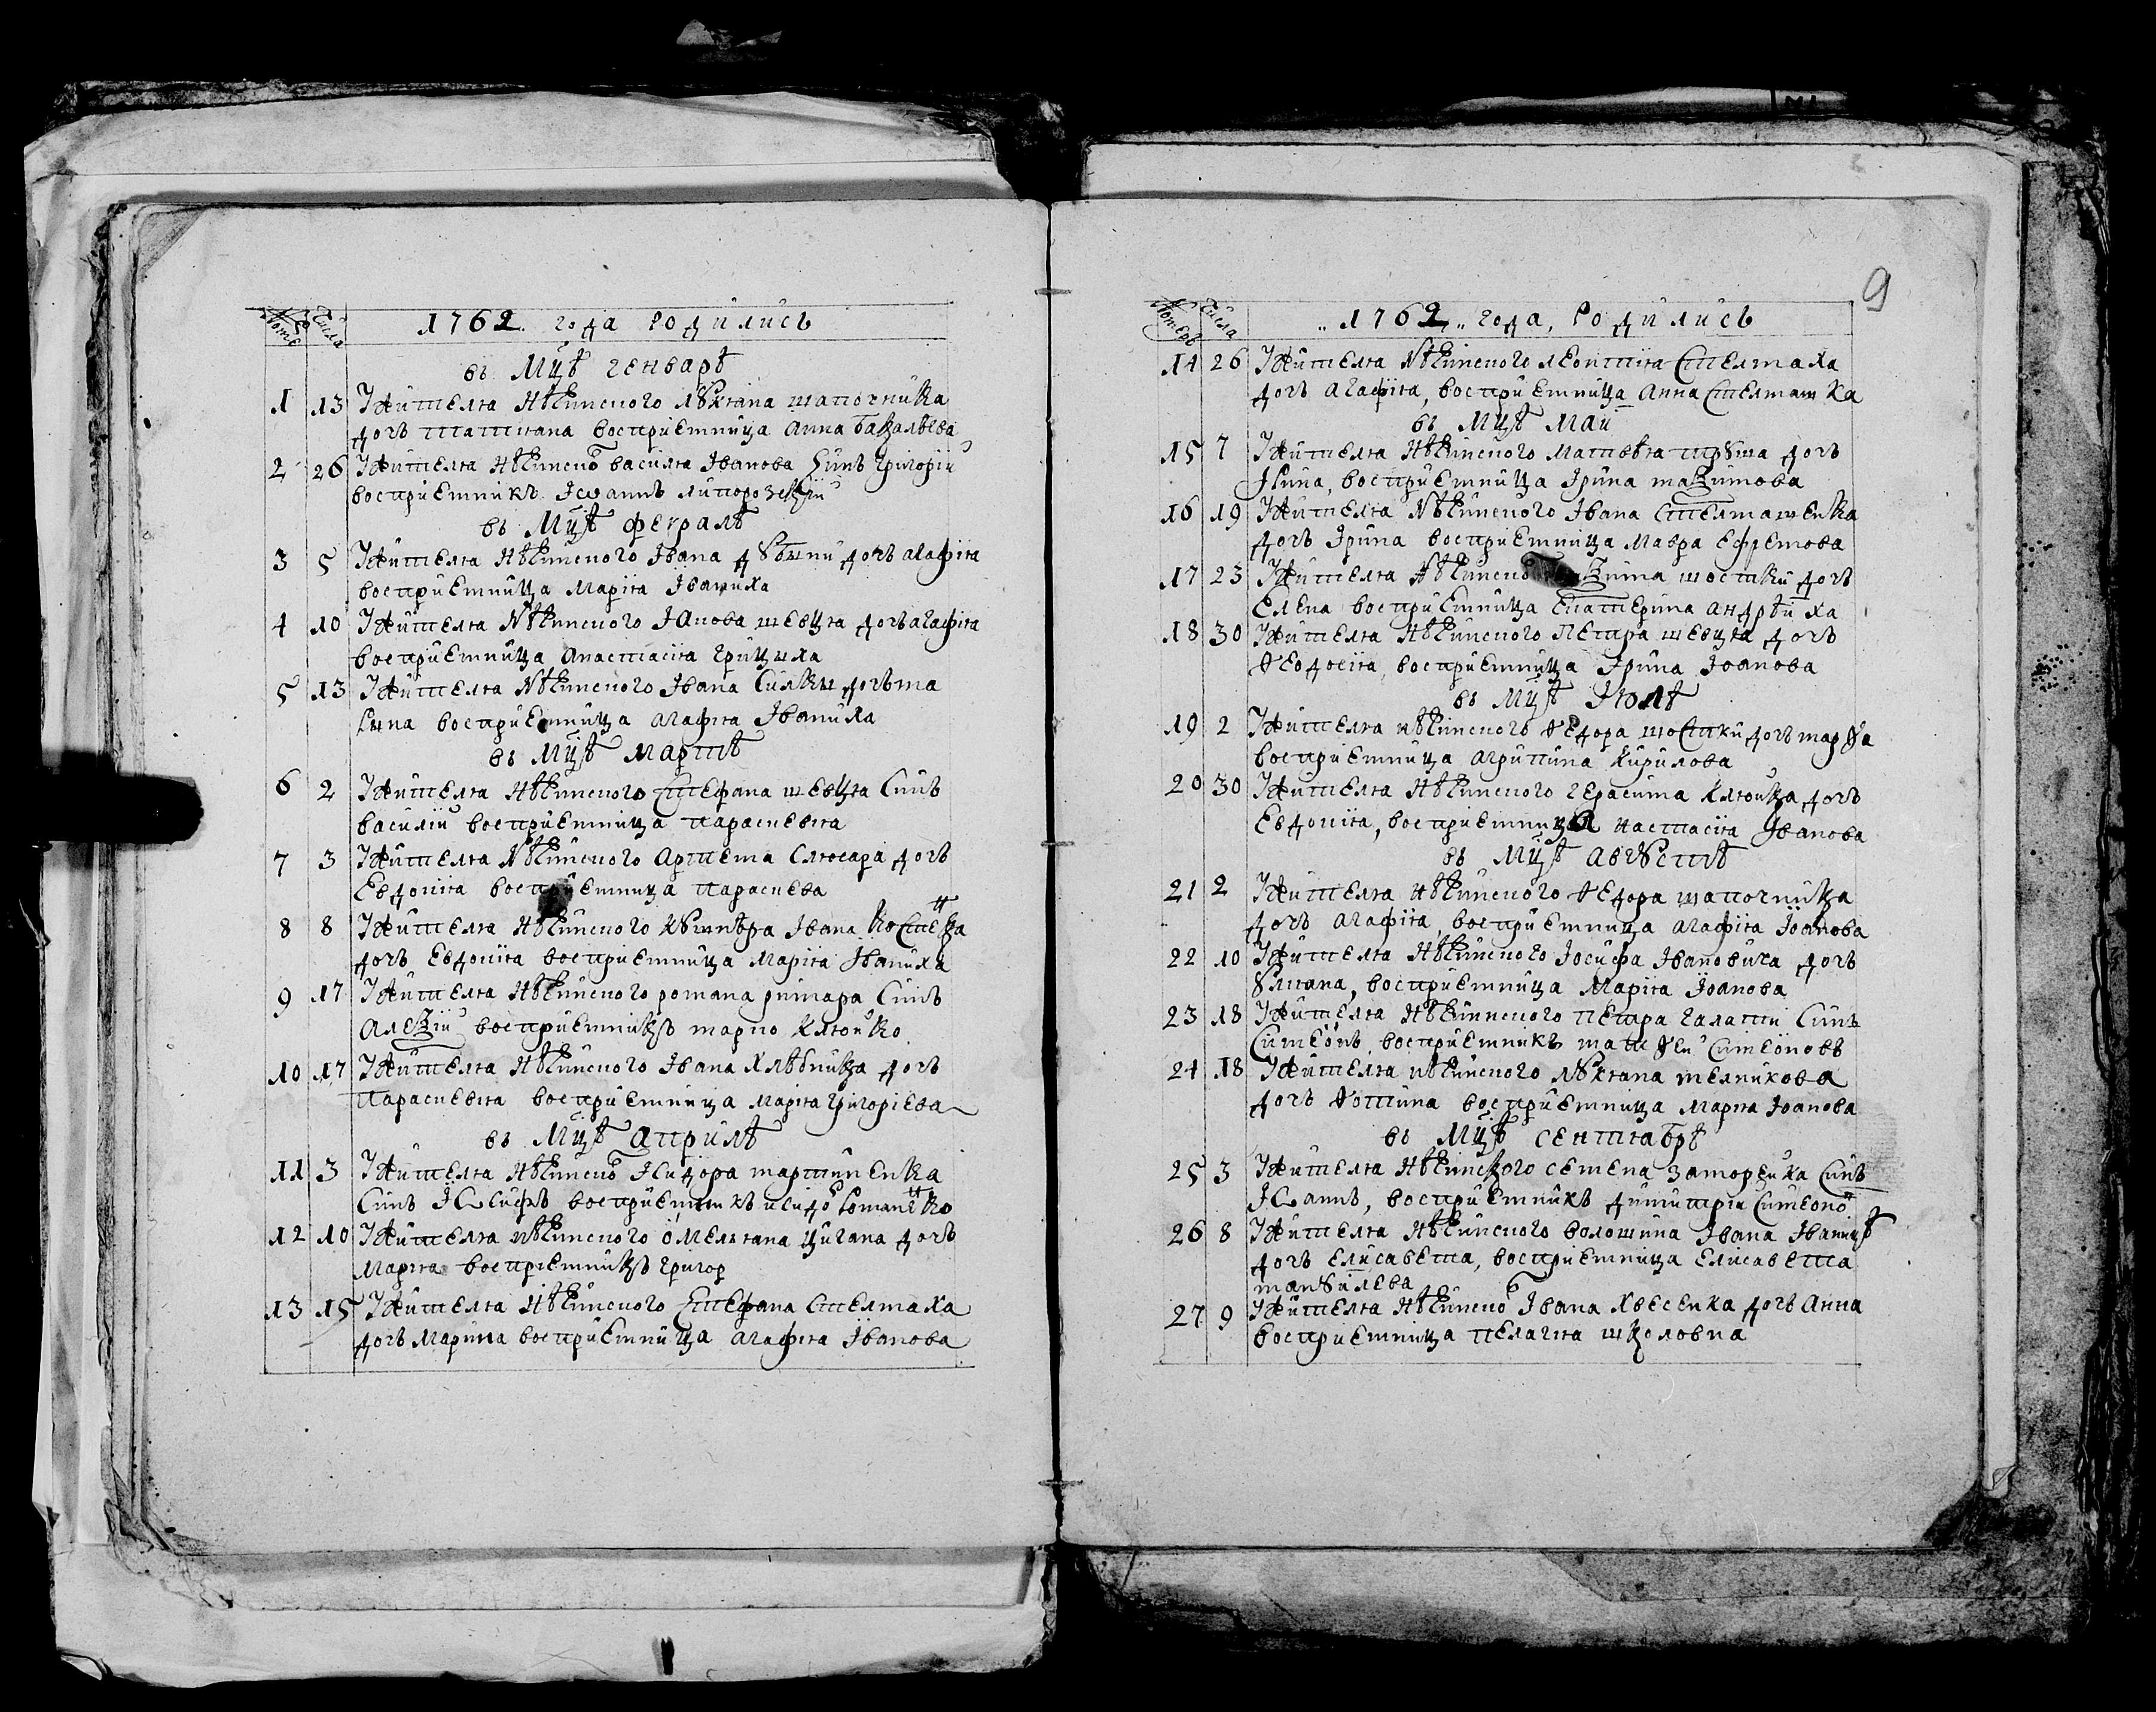 Номеръ Числа 1762. года родились
въ Мцѣ генварѣ
1 13 Жителя нѣжинского лукіана шапочника
дочь татіана восприемница анна бакалѣева
2 26 Жителя нѣжинско василія Іванова Синъ григорій
восприемникъ Іѡаннъ
въ Мцѣ февралѣ
3 5 Жителя нѣжинского Івана дочь агафія
восприемница Марія Іваниха
4 10 Жителя Нѣжинского Іакова шевця дочь агафія
восприемница анастасія грициха
5 13 Жителя Нѣжинского Івана Силки дочь ма
рина восприемница агафія Іваниха
въ Мцѣ мартѣ
6 2 Жителя нѣжинского Стефана шевця Синъ
василій восприемница параскевія
7 3 Жителя Нѣжинского артема слюсара дочь
Евдокія восприемница параскева
8 8 Жителя нѣжинского кушнѣра Івана костенка
дочь Евдокія восприемница Марія Іваниха
9 17 Жителя нѣжинского романа римара Синъ
алеѯій восприемникъ марко клюйко
10 17 Жителя нѣжинского Івана хлѣбника дочь
параскевія восприемница марія григоріева
въ Мцѣ априлѣ
11 3 Жителя нѣжинско Ісидора мартиненка
Синъ Іѡсифъ восприемникъ исидо романенко
12 10 Жителя нѣжинского омеляна цигана дочь
Марія восприемникъ григор
13 15 Жителя нѣжинского Стефана стелмаха
дочь марина восприемница агафія Іванова
9
Номеръ Числа 1762 года, родились
14 26 Жителя Нѣжинского леонтія Стелмаха
дочь агафія, восприемница анна стелмашка
въ Мцѣ маи
15 7 Жителя нѣжинского матвѣя труша дочь
восприемница Ірина маѯимова
16 19 Жителя Нѣжинского Івана Стелмашенка
дочь Ірина восприемница мавра ефремова
17 23 Жителя нѣжинско маѯима шостки дочь
Елена восприемница екатерина андрѣиха
18 30 Жителя нѣжинского петра шевця дочь
Ѳеодосія, восприемница Ірина Іоанова
въ Мцѣ Июлѣ
19 2 Жителя нѣжинского Ѳедора шостки дочь марѳа
восприемница агрипина кирилова
20 30 Жителя нѣжинского герасима клюйка дочь
Евдокія, восприемница настасія Іванова
въ Мцѣ авгꙋстѣ
21 2 Жителя нѣжинского Ѳедора шапочника
дочь агафія, восприемница агафія Іоанова
22 10 Жителя нѣжинского Іосифа Івановича дочь
ꙋліана, восприемница Марія Іоанова
23 18 Жителя нѣжинского петра галати Синъ
Симеонъ восприемникъ матѳей Симеоновъ
24 18 Жителя нѣжинского лꙋкіана мелникова
дочь Ѳотина восприемница Марія Іоанова
въ Мцѣ сентябрѣ
25 3 Жителя нѣжинского семена заморенка Синъ
Іѡаннъ, восприемникъ димитрій Симеоно
26 8 Жителя нѣжинского волошина Івана
дочь елисавета, восприемница Елисавета
манꙋилева
27 9 Жителя нѣжинско Івана хвесенка дочь анна
восприемница пелагія школовна